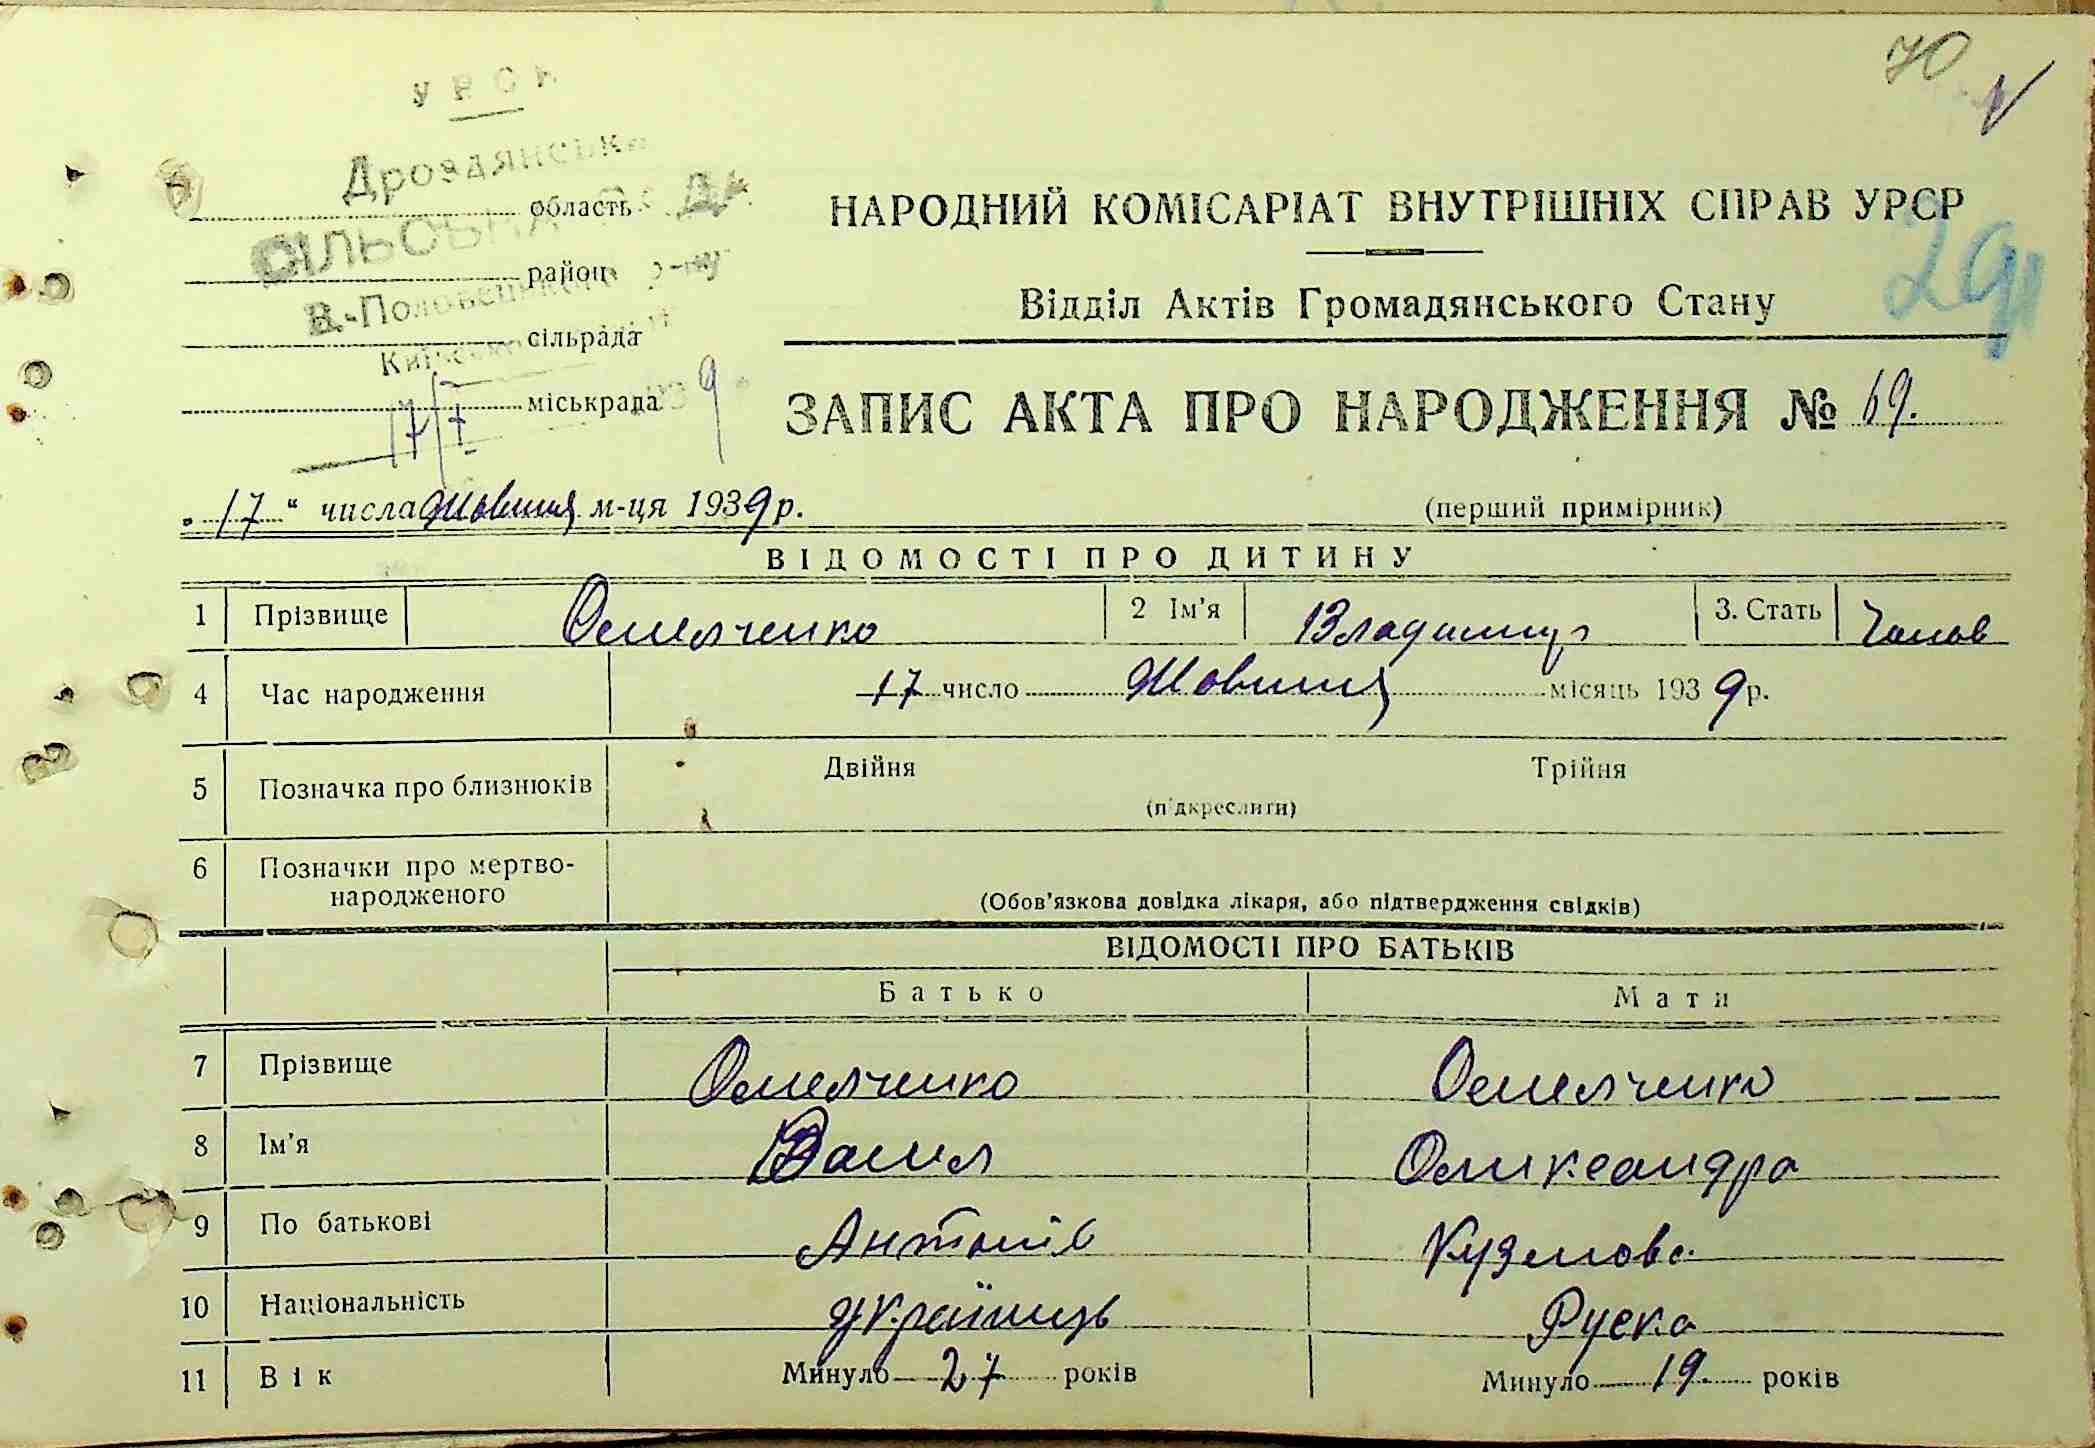 70
УРСР
Дроздянська
СІЛЬСЬКА РАДА
В.-Половецького р-ну
Київської
17/X 1939
область
район
сільрада
міськрада
НАРОДНИЙ КОМІСАРІАТ ВНУТРІШНІХ СПРАВ УРСР
29
Відділ Актів Громадянського Стану
ЗАПИС АКТА ПРО НАРОДЖЕННЯ № 69.
„17“ числа Жовтня м-ця 1939 р.
(перший примірник)
ВІДОМОСТІ ПРО ДИТИНУ
1 Прізвище Омелченко 2 Ім'я Владимир 3. Стать Чолов
4 Час народження 17 число Жовтня місяць 1939 р.
5 Позначка про близнюків Двійня Трійня
(підкреслити)
6 Позначки про мертво-
народженого
(Обов'язкова довідка лікаря, або підтвердження свідків)
ВІДОМОСТІ ПРО БАТЬКІВ
Батько Мати
7 Прізвище Омелченко Омелченко
8 Ім'я Васил Олександра
9 По батькові Антонів Кузмова
10 Національність українець Руска
11 Вік Минуло 27 років Минуло 19 років